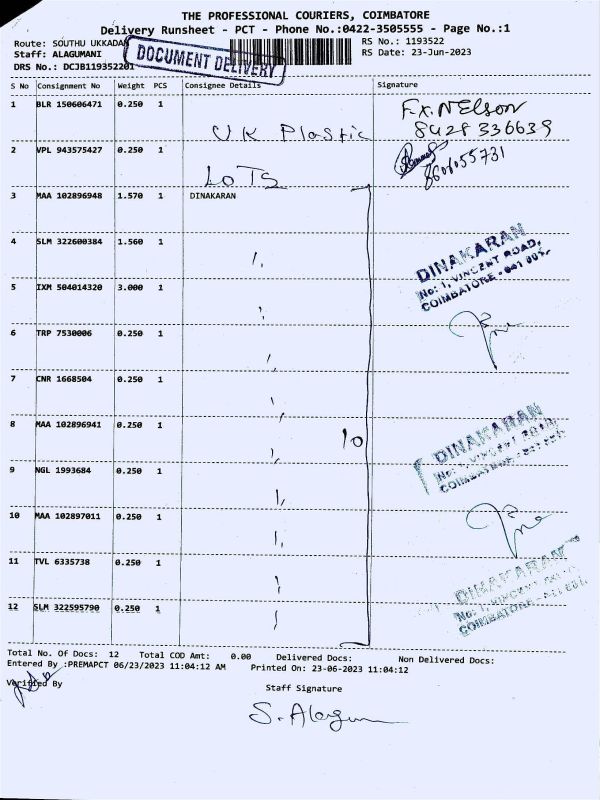 THE PROFESSIONAL COURIERS, COIMBATORE
Delivery Runsheet - PCT - Phone No.:0422-3505555 - Page No.:1
Route: SOUTHU UKKADAM
RS No.: 1193522
Staff: ALAGUMANI
RS Date: 23-Jun-2023
DRS No.: DCJB119352201
DOCUMENT DELIVERY
S No Consignment No Weight PCS Consignee Details Signature
1 BLR 150606471 0.250 1
UK Plastic
F.X. NElson
8428 336639
2 VPL 943575427 0.250 1
LOTS
8608055731
3 MAA 102896948 1.570 1 DINAKARAN
4 SLM 322600384 1.560 1 ''
DINAKARAN
No: 1, VINCENT ROAD,
COIMBATORE - 641 001.
5 IXM 504014320 3.000 1 ''
6 TRP 7530006 0.250 1 ''
7 CNR 1668504 0.250 1 ''
8 MAA 102896941 0.250 1 ''
10
DINAKARAN
No: 1, VINCENT ROAD,
COIMBATORE - 641 001.
9 NGL 1993684 0.250 1 ''
10 MAA 102897011 0.250 1 ''
11 TVL 6335738 0.250 1 ''
12 SLM 322595790 0.250 1 ''
DINAKARAN
No: 1, VINCENT ROAD,
COIMBATORE - 641 001.
Total No. Of Docs: 12 Total COD Amt: 0.00 Delivered Docs: Non Delivered Docs:
Entered By :PREMAPCT 06/23/2023 11:04:12 AM Printed On: 23-06-2023 11:04:12
Verified By
Staff Signature
S. Alagu